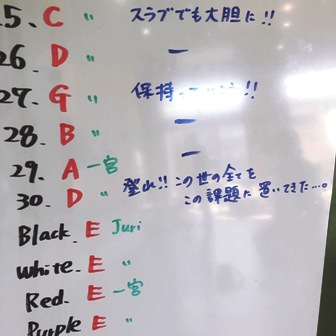 5. C 〃 スラブでも大胆に!!
26. D 〃 ー
27. G 〃 保持 !!
28. B 〃 ー
29. A 一宮 ー
30. D 〃 登れ!! この世の全てを
この課題に置いてきた…。
Black. E Juri
white. E 〃
Red. E 一宮
Purple E 〃